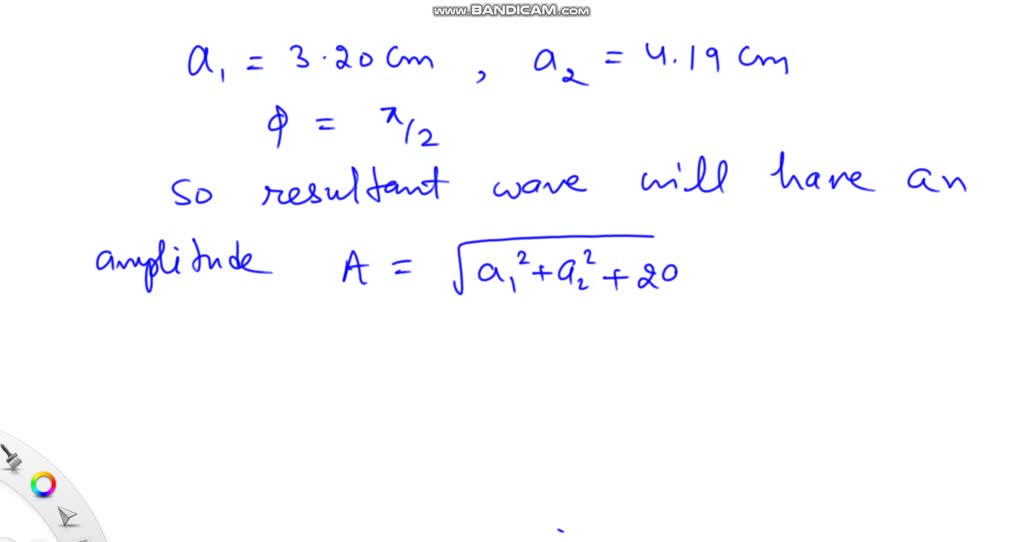 www.BANDICAM.com
a₁ = 3.20 cm , a₂ = 4.19 cm
φ = π/2
So resultant wave will have an
amplitude A = √a₁²+a₂²+20